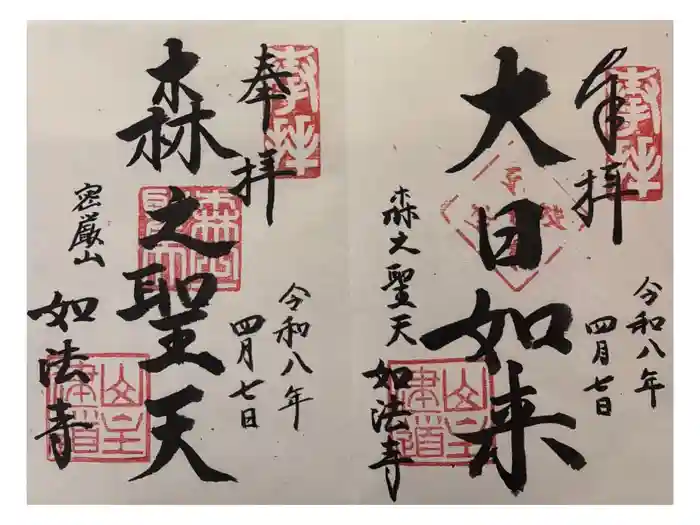 奉拝
大日如来
令和八年
四月七日
森之聖天
如法寺
奉拝
森之聖天
令和八年
四月七日
密厳山
如法寺
奉拝
奉拝